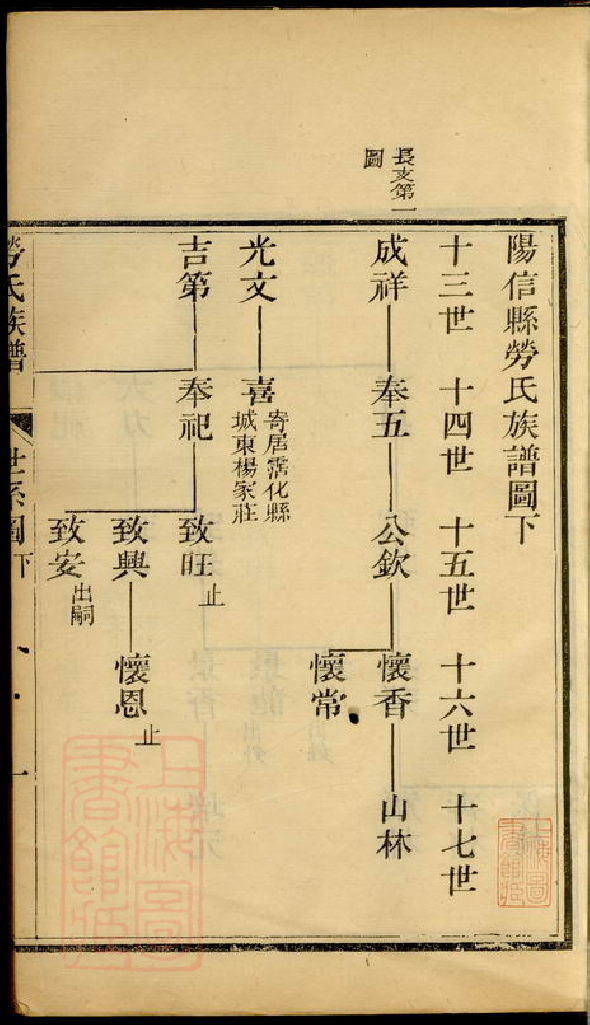 長支第一
圖
陽信縣勞氏族譜圖下
十三世 十四世 十五世 十六世 十七世
成祥 奉五 公欽 懷香 山林
懷常
光文 喜 寄居霑化縣
城東楊家莊
吉第 奉祀 致旺 止
致興 懷恩 止
致安 出嗣
勞氏族譜 世系圖下 一
上海圖
書館藏
上海圖
書館藏